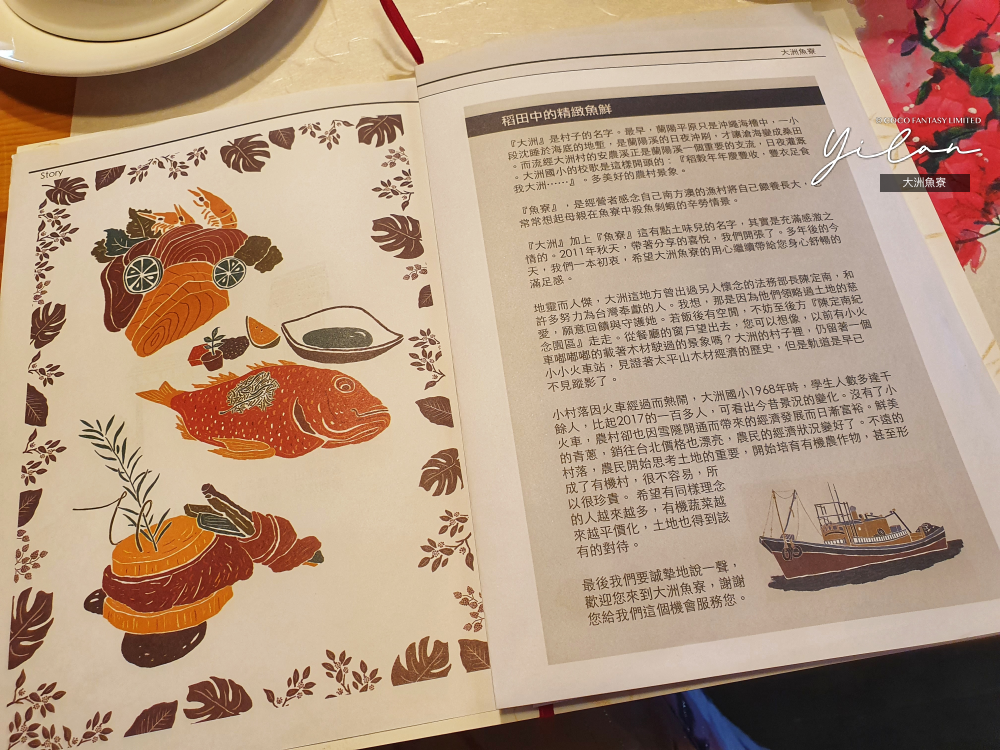 Story
大洲魚寮
稻田中的精緻魚鮮
『大洲』是村子的名字。最早，蘭陽平原只是沖繩海槽中，一小
段沈睡於海底的地塹，是蘭陽溪的日夜沖刷，才讓滄海變成桑田
。而流經大洲村的安農溪正是蘭陽溪一個重要的支流，日夜灌溉
。大洲國小的校歌是這樣開頭的：『稻穀年年慶豐收，豐衣足食
我大洲……』。多美好的農村景象。
『魚寮』，是經營者感念自己南方澳的漁村將自己餵養長大，
常常想起母親在魚寮中殺魚剝蝦的辛勞情景。
『大洲』加上『魚寮』這有點土味兒的名字，其實是充滿感激之
情的。2011年秋天，帶著分享的喜悅，我們開張了。多年後的今
天，我們一本初衷，希望大洲魚寮的用心繼續帶給您身心舒暢的
滿足感。
地靈而人傑，大洲這地方曾出過另人懷念的法務部長陳定南，和
許多努力為台灣奉獻的人。我想，那是因為他們領略過土地的慈
愛，願意回饋與守護她。若飯後有空閒，不妨至後方『陳定南紀
念園區』走走。從餐廳的窗戶望出去，您可以想像，以前有小火
車嘟嘟嘟的載著木材駛過的景象嗎？大洲的村子裡，仍留著一個
小小火車站，見證著太平山木材經濟的歷史，但是軌道是早已
不見蹤影了。
小村落因火車經過而熱鬧，大洲國小1968年時，學生人數多達千
餘人，比起2017的一百多人，可看出今昔景況的變化。沒有了小
火車，農村卻也因雪隧開通而帶來的經濟發展而日漸富裕。鮮美
的青蔥，銷往台北價格也漂亮，農民的經濟狀況變好了。不遠的
村落，農民開始思考土地的重要，開始培育有機農作物，甚至形
成了有機村，很不容易，所
以很珍貴。 希望有同樣理念
的人越來越多，有機蔬菜越
來越平價化，土地也得到該
有的對待。
最後我們要誠摯地說一聲，
歡迎您來到大洲魚寮，謝謝
您給我們這個機會服務您。
CUCO FANTASY LIMITED
Yilan
大洲魚寮